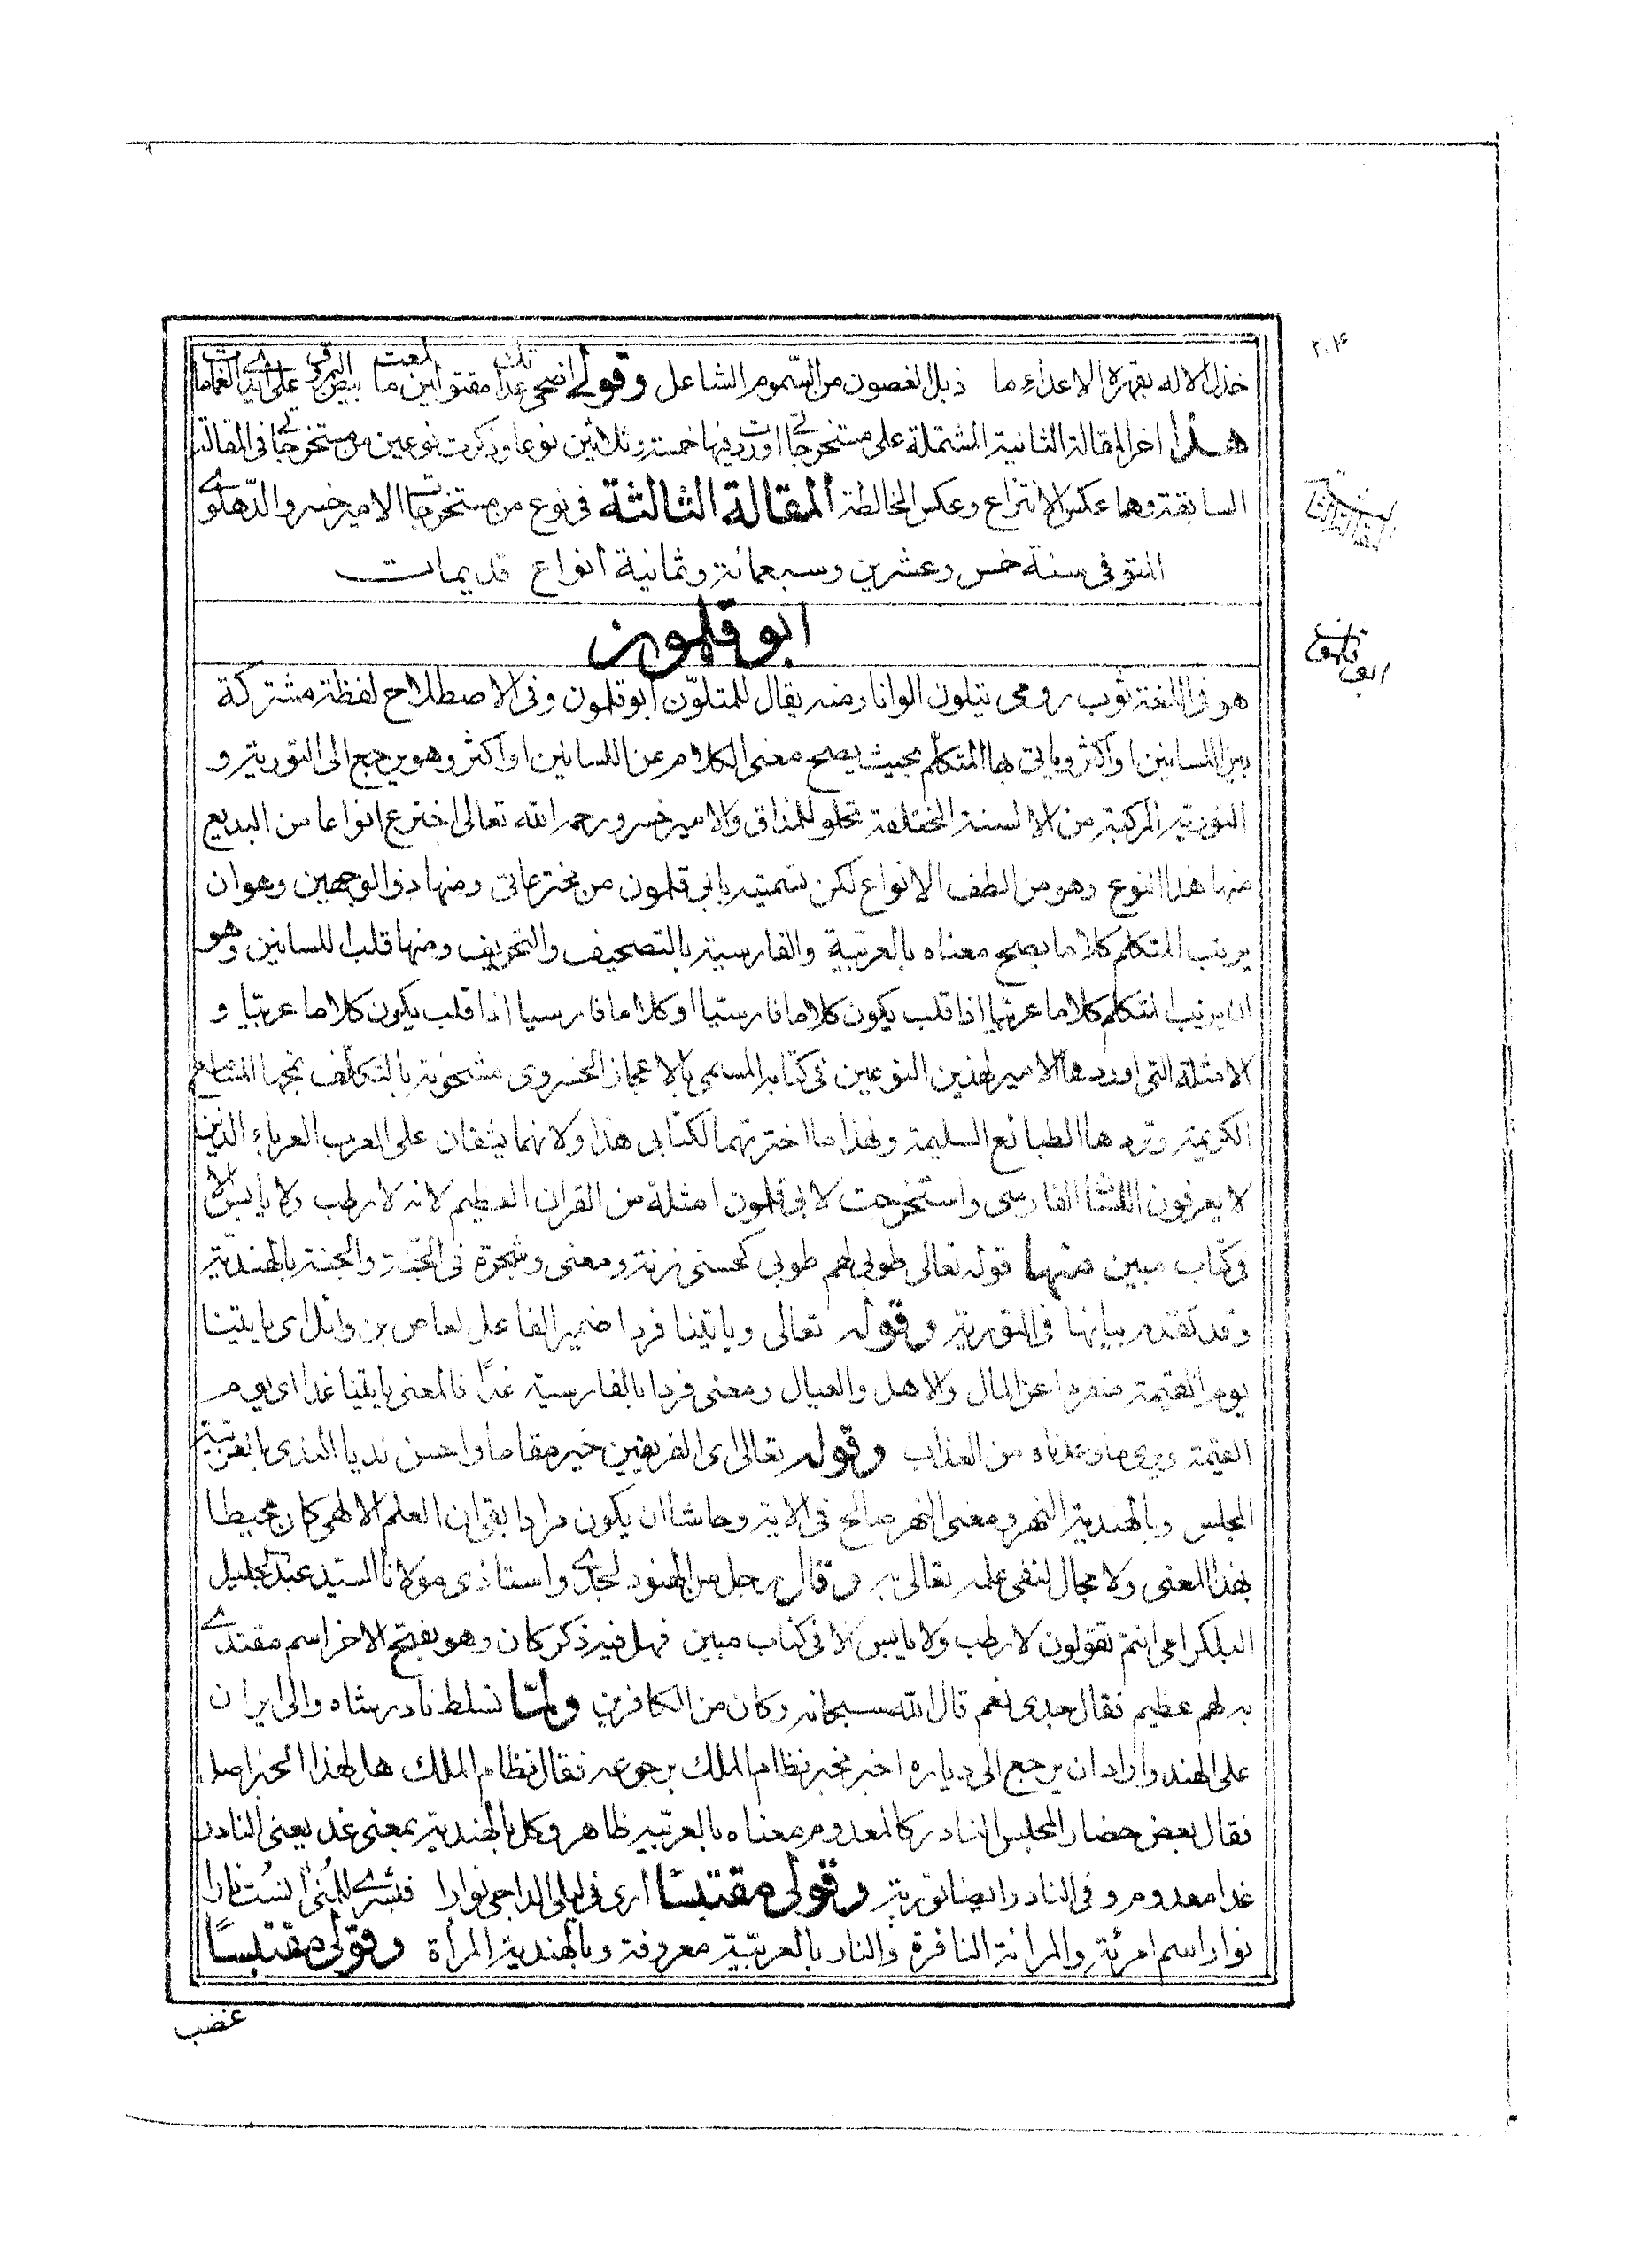 ٢٠٤
خذل الاله بقهره الاعداء ما ذبل الغصون من السموم الشاعل وقولے اضحى غدا مقتولين ما بيض البرق على ايد الغاما
هذا اخر المقالة الثانية المشتملة على مستخرجاتى اوردت فيها خمسة وثلاثين نوعا وذكرت نوعين من مستخرجاتى فى المقالة
السابقة وهما عكس الانتزاع وعكس المخالطة المقالة الثالثة فى نوع من مستخرجات الامير خسرو الدهلوے
المتوفى سنة خمس وعشرين وسبعمائة وثمانية أنواع قديمات
ابو قلمون
ابو قلمون
هو فى اللغة ثوب رومى يتلون الوانا ومنه يقال للمتلوّن أبو قلمون وفى الاصطلاح لفظة مشتركة
بين اللسانين او اكثر وياتى بها المتكلم بحيث يصح معنى الكلام عن اللسانين او اكثر وهو يرجع الى التورية و
التورية المركبة من الالسنة المختلفة تحلو للمذاق والامير خسرو رحمه الله تعالى اخترع انواعا من البديع
منها هذا النوع وهو من الطف الانواع لكن تسميته بابى قلمون من مخترعاتى ومنها ذو الوجهين وهو ان
يرتب المتكلم كلاما يصح معناه بالعربّية والفارسية بالتصحيف والتحريف ومنها قلب اللسانين وهو
ان يرتب المتكلم كلاما عربيّا اذا قلب يكون كلاما فارسيّا او كلاما فارسيا اذا قلب يكون كلاما عربيّا و
الامثلة التى اوردها الامير لهذين النوعين فى كتابه المسمى بالاعجاز الخسروى مشحونة بالتكلّف تمجها المسامع
الكريمة وتردها الطبائع السليمة ولهذا ما اخترتهما لكتابى هذا ولانهما يثقلان على العرب العرباء الذين
لا يعرفون اللسان الفارسى واستخرجت لابى قلمون امثلة من القران العظيم لانه لا رطب ولا يابس الا
فى كتاب مبين منها قوله تعالى طوبى لهم طوبى كحسنى زنة ومعنى وشجرة فى الجنّة والجنة بالهنديّة
وقد تقدم بيانها فى التورية وقوله تعالى وياتينا فردا ضمير الفاعل لعاص بن وائل اى ياتينا
يوم القيمة منفردا عن المال والاهل والعيال ومعنى فردا بالفارسية غدًا فالمعنى ياتينا غدا اى يوم
القيمة ويرى ما وعدناه من العذاب وقوله تعالى اى الفريقين خير مقاما واحسن نديا الندى بالعربية
المجلس وبالهندية النهر ومعنى النهر صالح فى الاية وحاشا ان يكون مرادا بقى ان العلم الالهى كان محيطا
بهذا المعنى ولا مجال لنفى علمه تعالى به وقال رجل من الهنود لجدے واستاذى مولانا السيد عبد الجليل
البلكرامى انتم تقولون لا رطب ولا يابس الا فى كتاب مبين فهل فيه ذكر كان وهو بفتح الاخر اسم مقتدے
به لهم عظيم فقال جدى نعم قال الله سبحانه وكان من الكافرين ولمّا تسلط نادر شاه والى ايران
على الهند واراد ان يرجع الى دياره اخبر مخبر نظام الملك برجوعه فقال نظام الملك هل لهذا الخبر اصل
فقال بعض حضار المجلس النادر كالمعدوم معناه بالعربّية ظاهر وكل بالهندية بمعنى غد يعنى النادر
غدا معدوم وفى النادر ايضا تورية وقولى مقتبسًا ارى فى ليلى الداجى نوارا فبشرے للمُنى انست نارا
نوار اسم امرئة والمرائة النافرة والنار بالعربيّة معروفة وبالهندية المرأة وقولى مقتبسًا
غضب